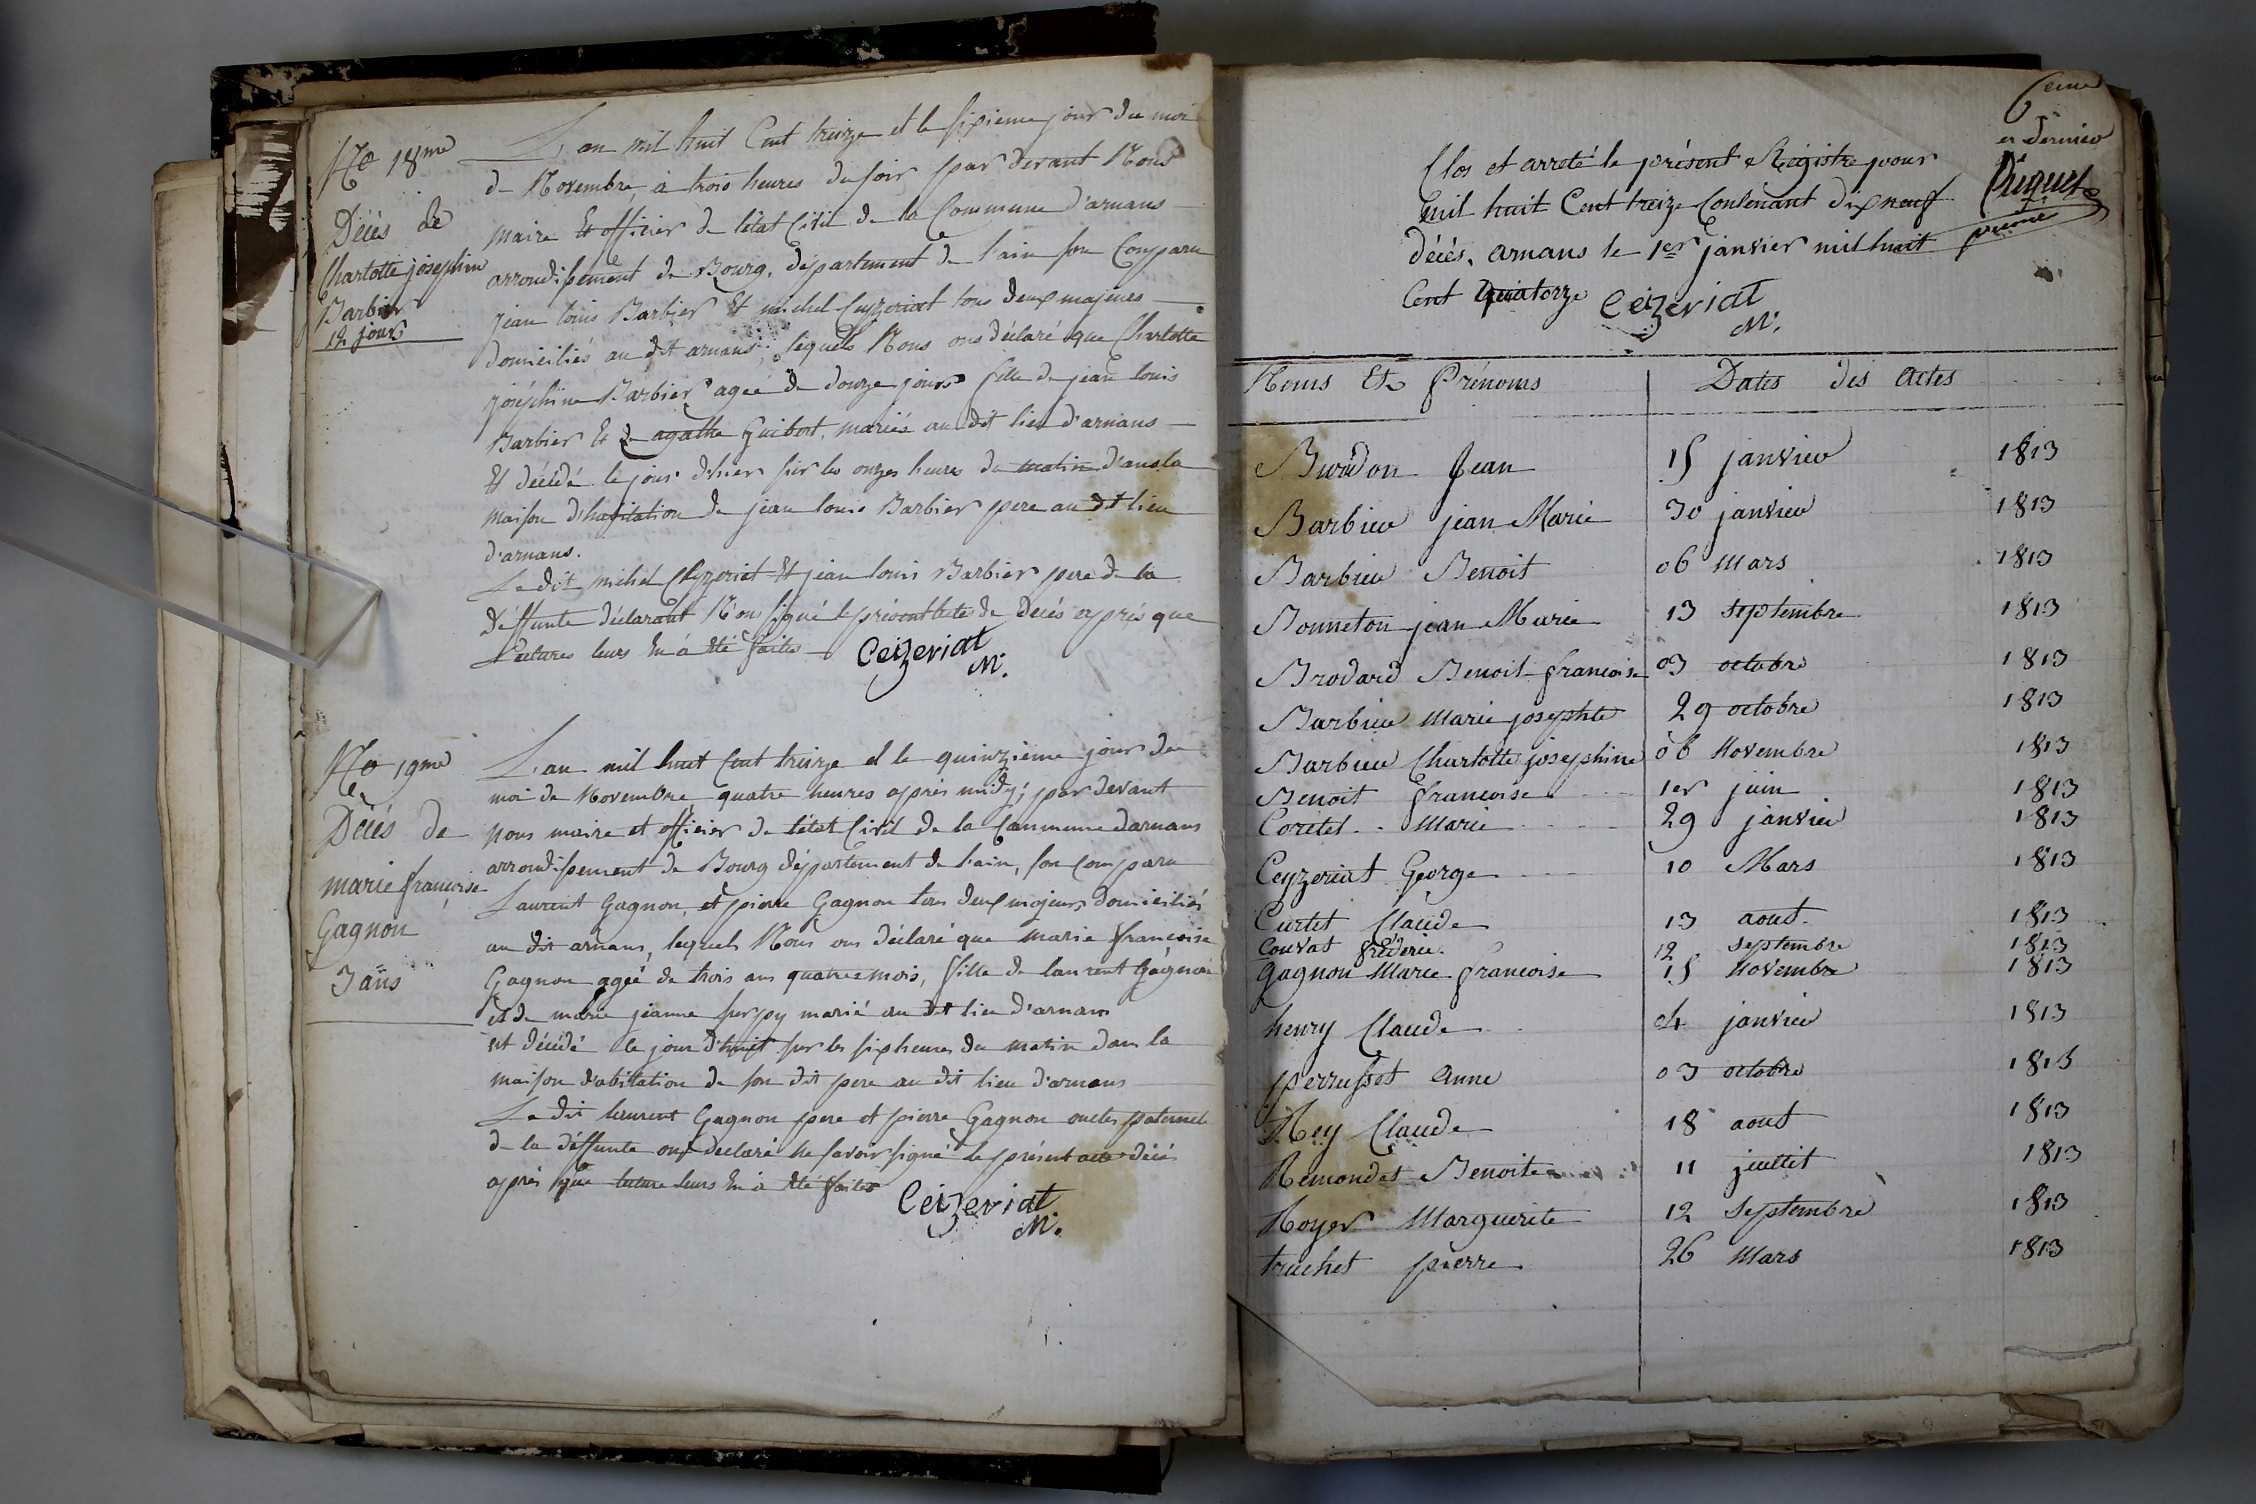 No 18me
Décés de
Charlotte joséphine
Barbier
12 jours
L'an mil huit Cent treize et le sixieme jour du moi
de Novembre à trois heures du soir par devant Nous
maire et officier de l'état Civil de la Commune d'arnans
arrondissement de Bourg, département de l'ain son Comparu
jean louis Barbier et michel Ceyzeriat tous deux majeurs
domiciliés au dit arnans, lequels Nous ons déclaré que Charlotte
joséphine Barbier agée de douze jours fille de jean louis
Barbier et de agathe Guibert, mariés au dit lieu d'arnans
Et décédé le jour d'hier sur les onzes heures du matin dans la
maison d'habitation de jean louis Barbier pere au dit lieu
d'arnans.
Le dit michel Ceyzeriat et jean louis Barbier pere de la
déffunte déclarant Non signé le présent acte de décés après que
Lectures leurs En à été faites
Ceizeriat
M.
No 19me
Décés de
marie françoise
Gagnon
3 ans
L'an mil huit Cent treize et le quinzième jour du
moi de Novembre quatre heures après midy; par devant
nous maire et officier de l'état Civil de la Commune darnans
arrondissement de Bourg département de l'ain, son comparu
Laurent Gagnon, et pierre Gagnon tous deux majeurs domiciliés
au dit arnans, lequels Nous ons déclaré que marie francoise
Gagnon agée de trois ans quatres mois, fille de laurent Gagnon
et de marie jeanne marié au dit lieu d'arnans
et décédé le jour d'huit sur les six heures du matin dans la
maison d'abitation de son dit pere au dit lieu d'arnans
Le dit laurent Gagnon pere et pierre Gagnon oncles paternel
de la déffunte ons declaré ne savoir signé le présent acte décés
après que lecture leurs En à été faites
Ceizeriat
M.
et dernier
Puquet
Clos et arreté le présent Registre pour
mil huit Cent treize Contenant dix neuf
décés, arnans le 1er janvier mil huit
Cent Quatorze
Ceizeriat
M.
Noms Et Prénoms Dates des Actes
Burdon Jean 15 janvier 1813
Barbier jean Marie 30 janvier 1813
Barbier Benoit 06 Mars 1813
Bonneton jean Marie 13 septembre 1813
Brodard Benoit francoise 03 octobre 1813
Barbier Marie josephte 29 octobre 1813
Barbier Charlotte josephine 06 Novembre 1813
Benoit francoise 1er juin 1813
Coretet Marie 29 janvier 1813
Ceyzeriat George 10 Mars 1813
Curtet Claude 13 aout 1813
Convat frédéric 12 septembre 1813
Gagnon Marie francoise 15 Novembre 1813
henry Claude 04 janvier 1813
perrusset Anne 03 octobre 1813
Rey Claude 18 aout 1813
Remondet Benoite 11 juillet 1813
Royer Marguerite 12 Septembre 1813
truchet pierre 26 Mars 1813